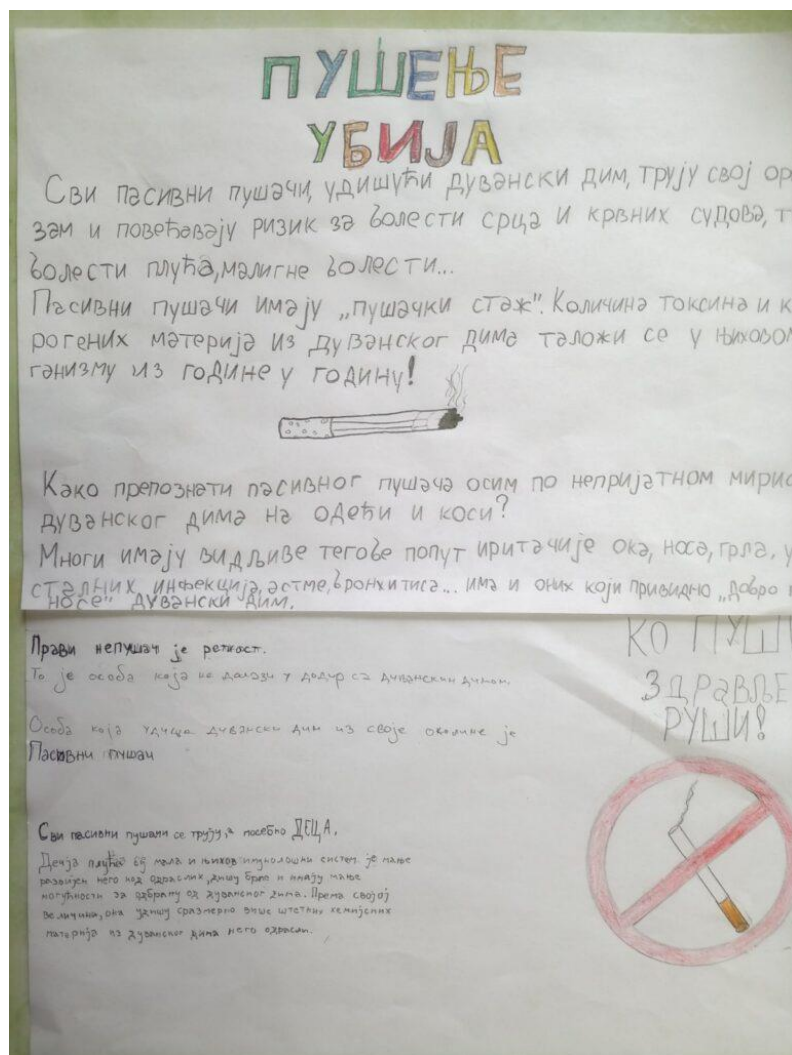 ПУШЕЊЕ
УБИЈА
Сви пасивни пушачи, удишући дувански дим, трују свој ор
зам и повећавају ризик за болести срца и крвних судова, т
болести плућа, малигне болести...
Пасивни пушачи имају „пушачки стаж". Количина токсина и к
рогених материја из дуванског дима таложи се у њиховом
ганизму из године у годину!
Како препознати пасивног пушача осим по непријатном мирис
дуванског дима на одећи и коси?
Многи имају видљиве тегобе попут иритације ока, носа, грла, у
сталних инфекција, астме, бронхитиса... има и оних који привидно „добро
носе" дувански дим.
Прави непушач је реткост.
То је особа која не долази у додир са дуванским димом.
Особа која удише дувански дим из своје околине је
Пасивни пушач
Сви пасивни пушачи се трују, а посебно ДЕЦА.
Дечја плућа су мала и њихов имунолошки систем је мање
развијен него код одраслих, дишу брже и имају мање
могућности за одбрану од дуванског дима. Према својој
величини, она удишу сразмерно више штетних хемијских
материја из дуванског дима него одрасли.
КО ПУШИ
ЗДРАВЉЕ
РУШИ!